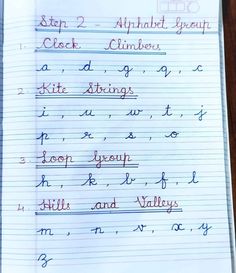 Step 2 - Alphabet Group
1. Clock Climbers
a, d, g, q, c
2. Kite Strings
i, u, w, t, j
p, r, s, o
3. Loop Group
h, k, b, f, l
4. Hills and Valleys
m, n, v, x, y
z